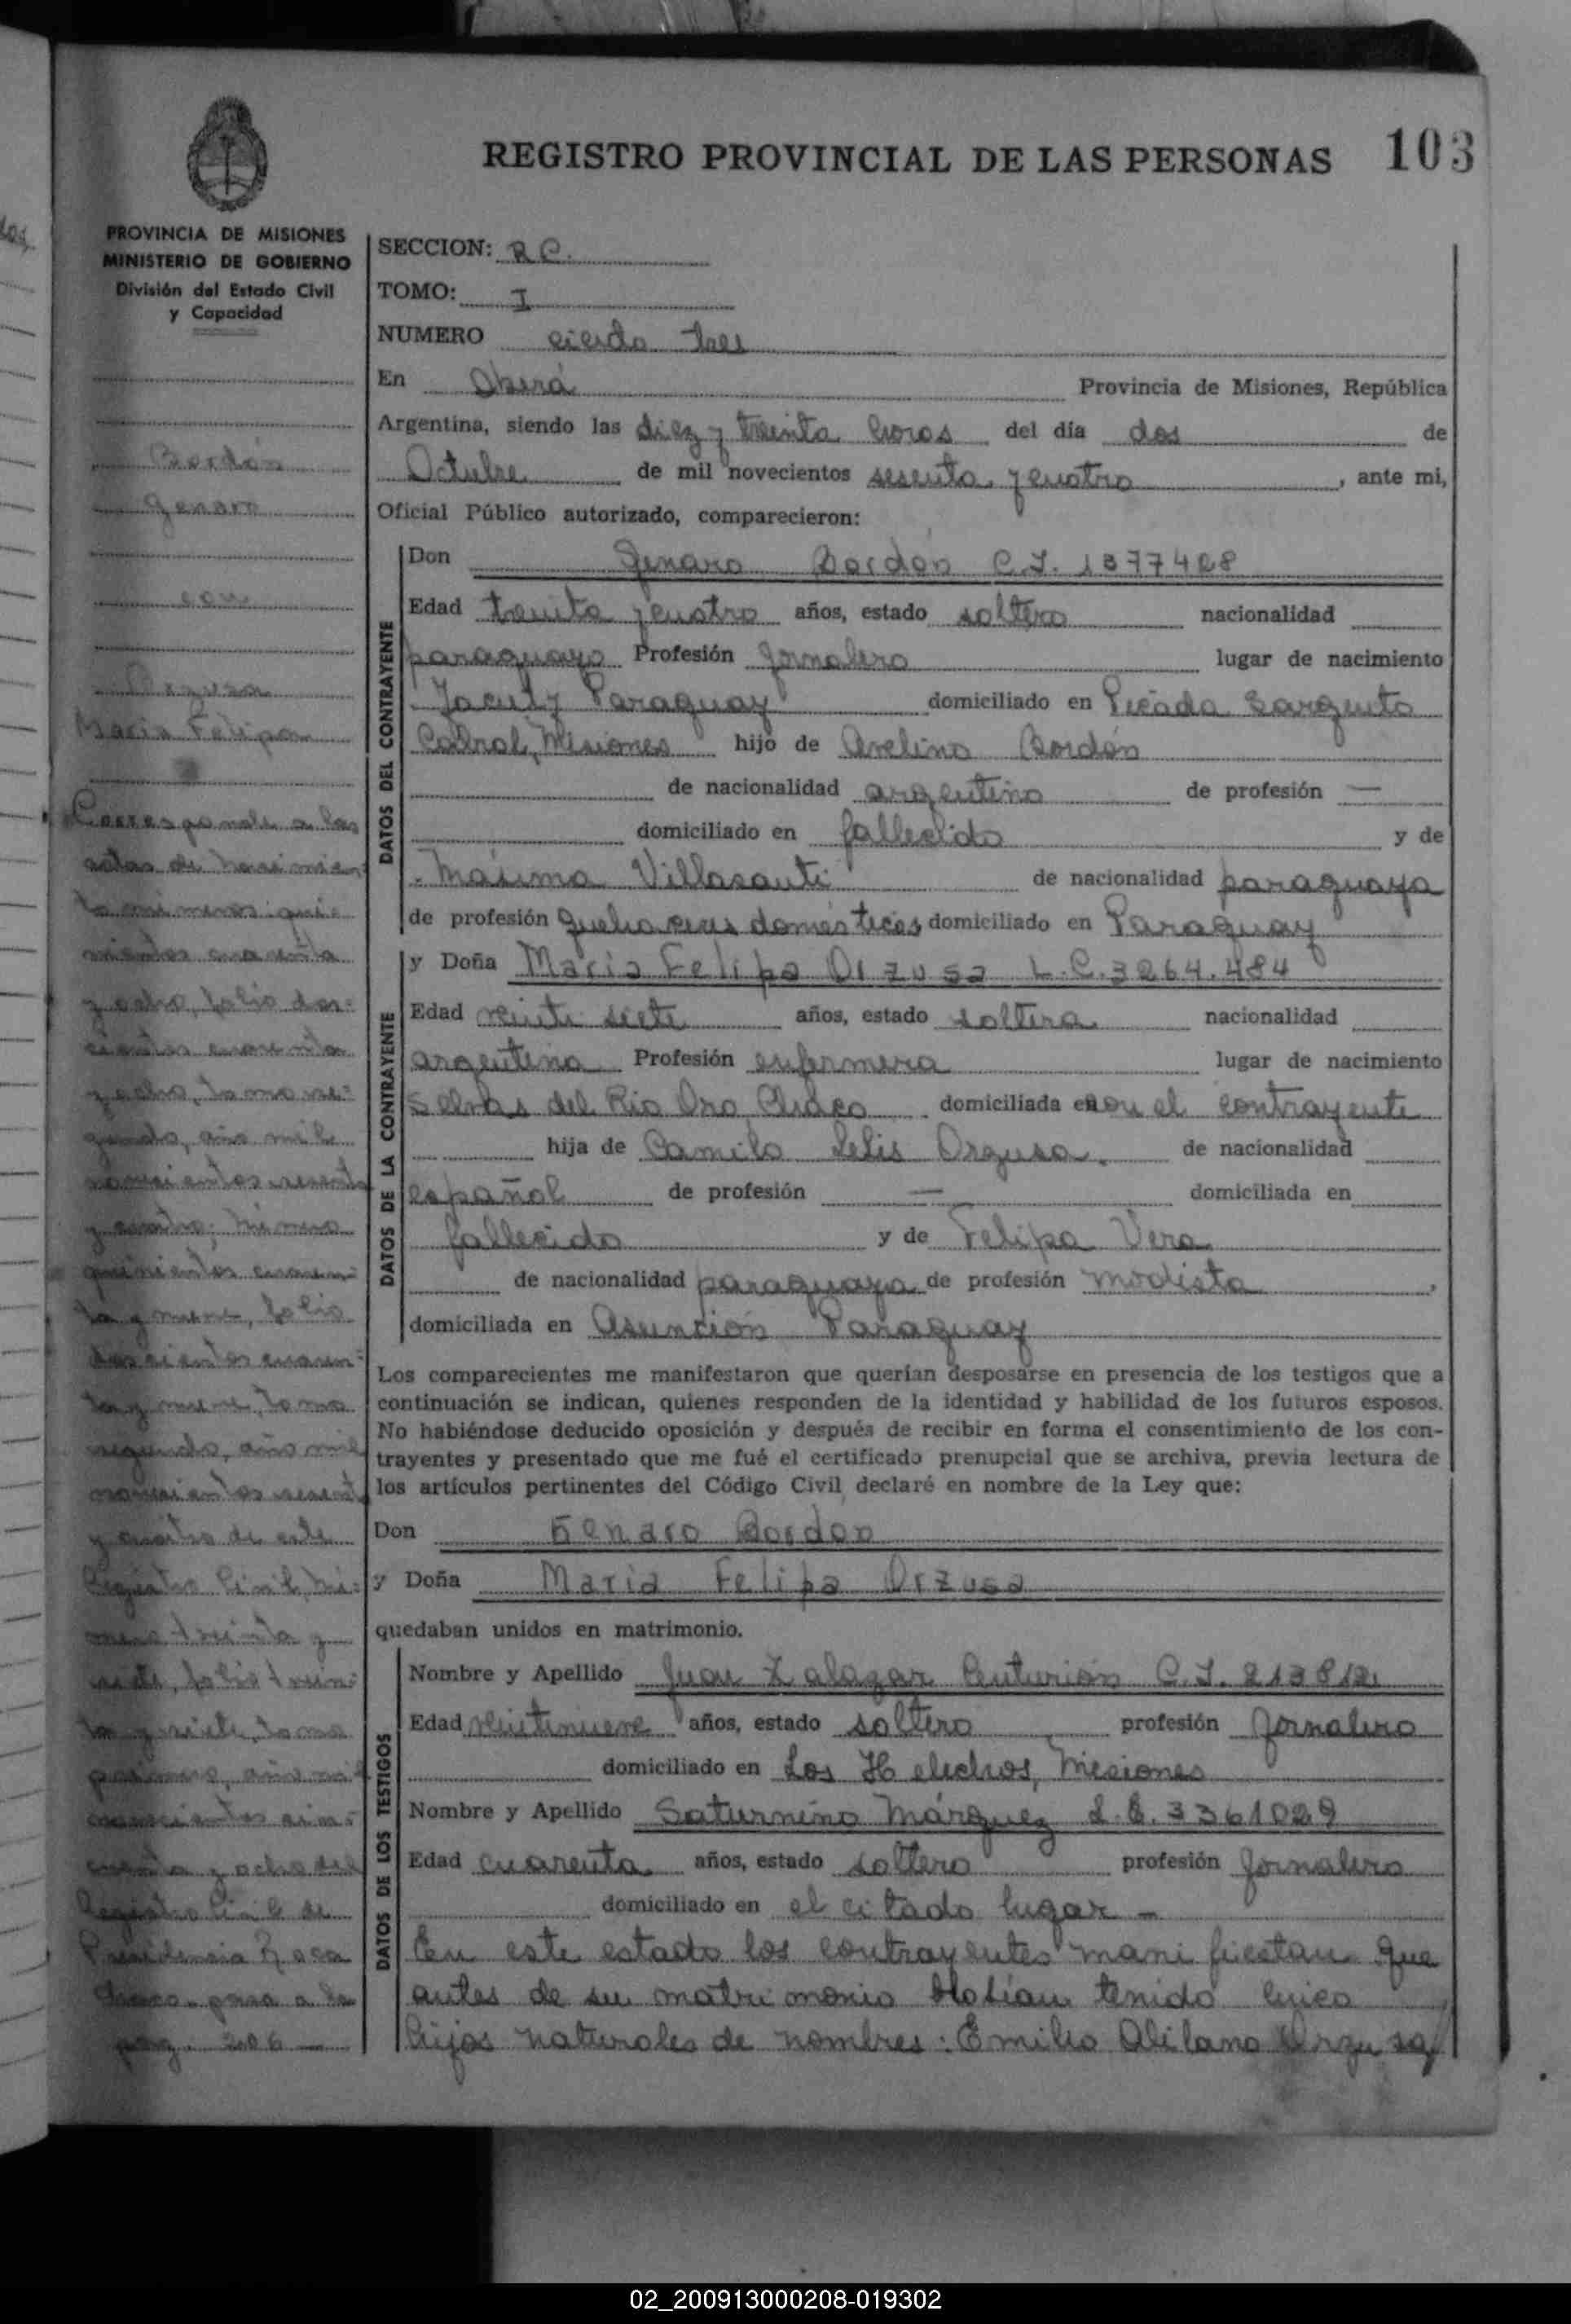 REGISTRO PROVINCIAL DE LAS PERSONAS 103
PROVINCIA DE MISIONES
MINISTERIO DE GOBIERNO
División del Estado Civil
y Capacidad
Bordón
Genaro
con
Orzusa
Maria Felipa
Corresponde a las
actas de nacimien
to números quin
nientos cuarenta
y ocho, folio dos=
cientos cuarenta
y ocho, tomo se=
gundo, año mil
novecientos sesenta
y cuatro; número
quinientos cuaren=
ta y nueve, folio
doscientos cuaren=
ta y nueve, tomo
segundo, año mil
novecientos sesenta
y cuatro de este
Registro Civil, nú=
mero treinta y
siete, folio trein=
ta y siete, tomo
primero, año mil
novecientos cin=
cuenta y ocho del
Registro Civil de
Presidencia Roca
Chaco. pasa a la
pag. 206 —
SECCION: R C.
TOMO: I
NUMERO ciento tres
En Oberá Provincia de Misiones, República
Argentina, siendo las diez y treinta horas del día dos de
Octubre de mil novecientos sesenta y cuatro, ante mi,
Oficial Público autorizado, comparecieron:
DATOS DEL CONTRAYENTE
Don Genaro Bordón C.I. 1377428
Edad treinta y cuatro años, estado soltero nacionalidad
paraguayo Profesión Jornalero lugar de nacimiento
Paraguay domiciliado en Picada Sargento
Cabral, Misiones hijo de Avelino Bordón
de nacionalidad argentino de profesión —
domiciliado en fallecido y de
Máxima Villasanti de nacionalidad paraguaya
de profesión quehaceres domésticos domiciliado en Paraguay
DATOS DE LA CONTRAYENTE
y Doña Maria Felipa Orzusa L.C. 3264.484
Edad veinte siete años, estado soltera nacionalidad
argentina Profesión enfermera lugar de nacimiento
Selvas del Rio Oro Chaco domiciliada en con el contrayente
hija de Camilo Orzusa. de nacionalidad
español de profesión — domiciliada en
fallecido y de Felipa Vera
de nacionalidad paraguaya de profesión modista,
domiciliada en Asunción Paraguay
Los comparecientes me manifestaron que querían desposarse en presencia de los testigos que a
continuación se indican, quienes responden de la identidad y habilidad de los futuros esposos.
No habiéndose deducido oposición y después de recibir en forma el consentimiento de los con-
trayentes y presentado que me fué el certificado prenupcial que se archiva, previa lectura de
los artículos pertinentes del Código Civil declaré en nombre de la Ley que:
Don Genaro Bordon
y Doña Maria Felipa Orzusa
quedaban unidos en matrimonio.
DATOS DE LOS TESTIGOS
Nombre y Apellido Juan Zalazar Centurión C.I. 213812
Edad veintinueve años, estado soltero profesión Jornalero
domiciliado en Los Helechos, Misiones
Nombre y Apellido Saturnino Márquez L.E. 3361029
Edad cuarenta años, estado soltero profesión Jornalero
domiciliado en el citado lugar —
En este estado los contrayentes manifiestan que
antes de su matrimonio habían tenido cinco
hijos naturales de nombres: Emilio Orzusa
02_200913000208-019302